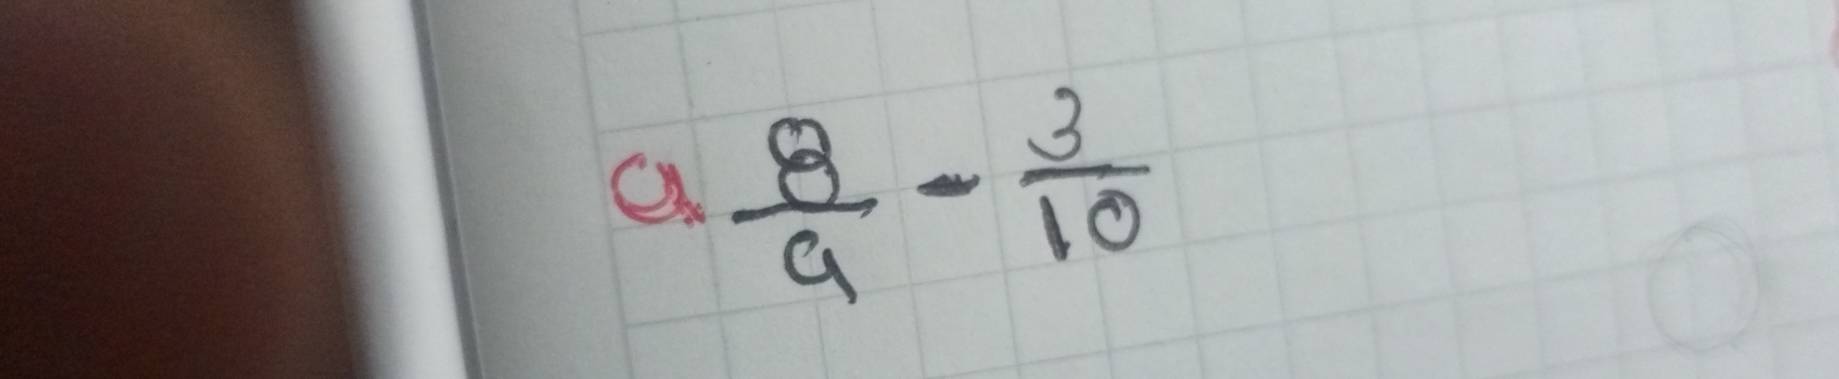 a. 8/9 - 3/10